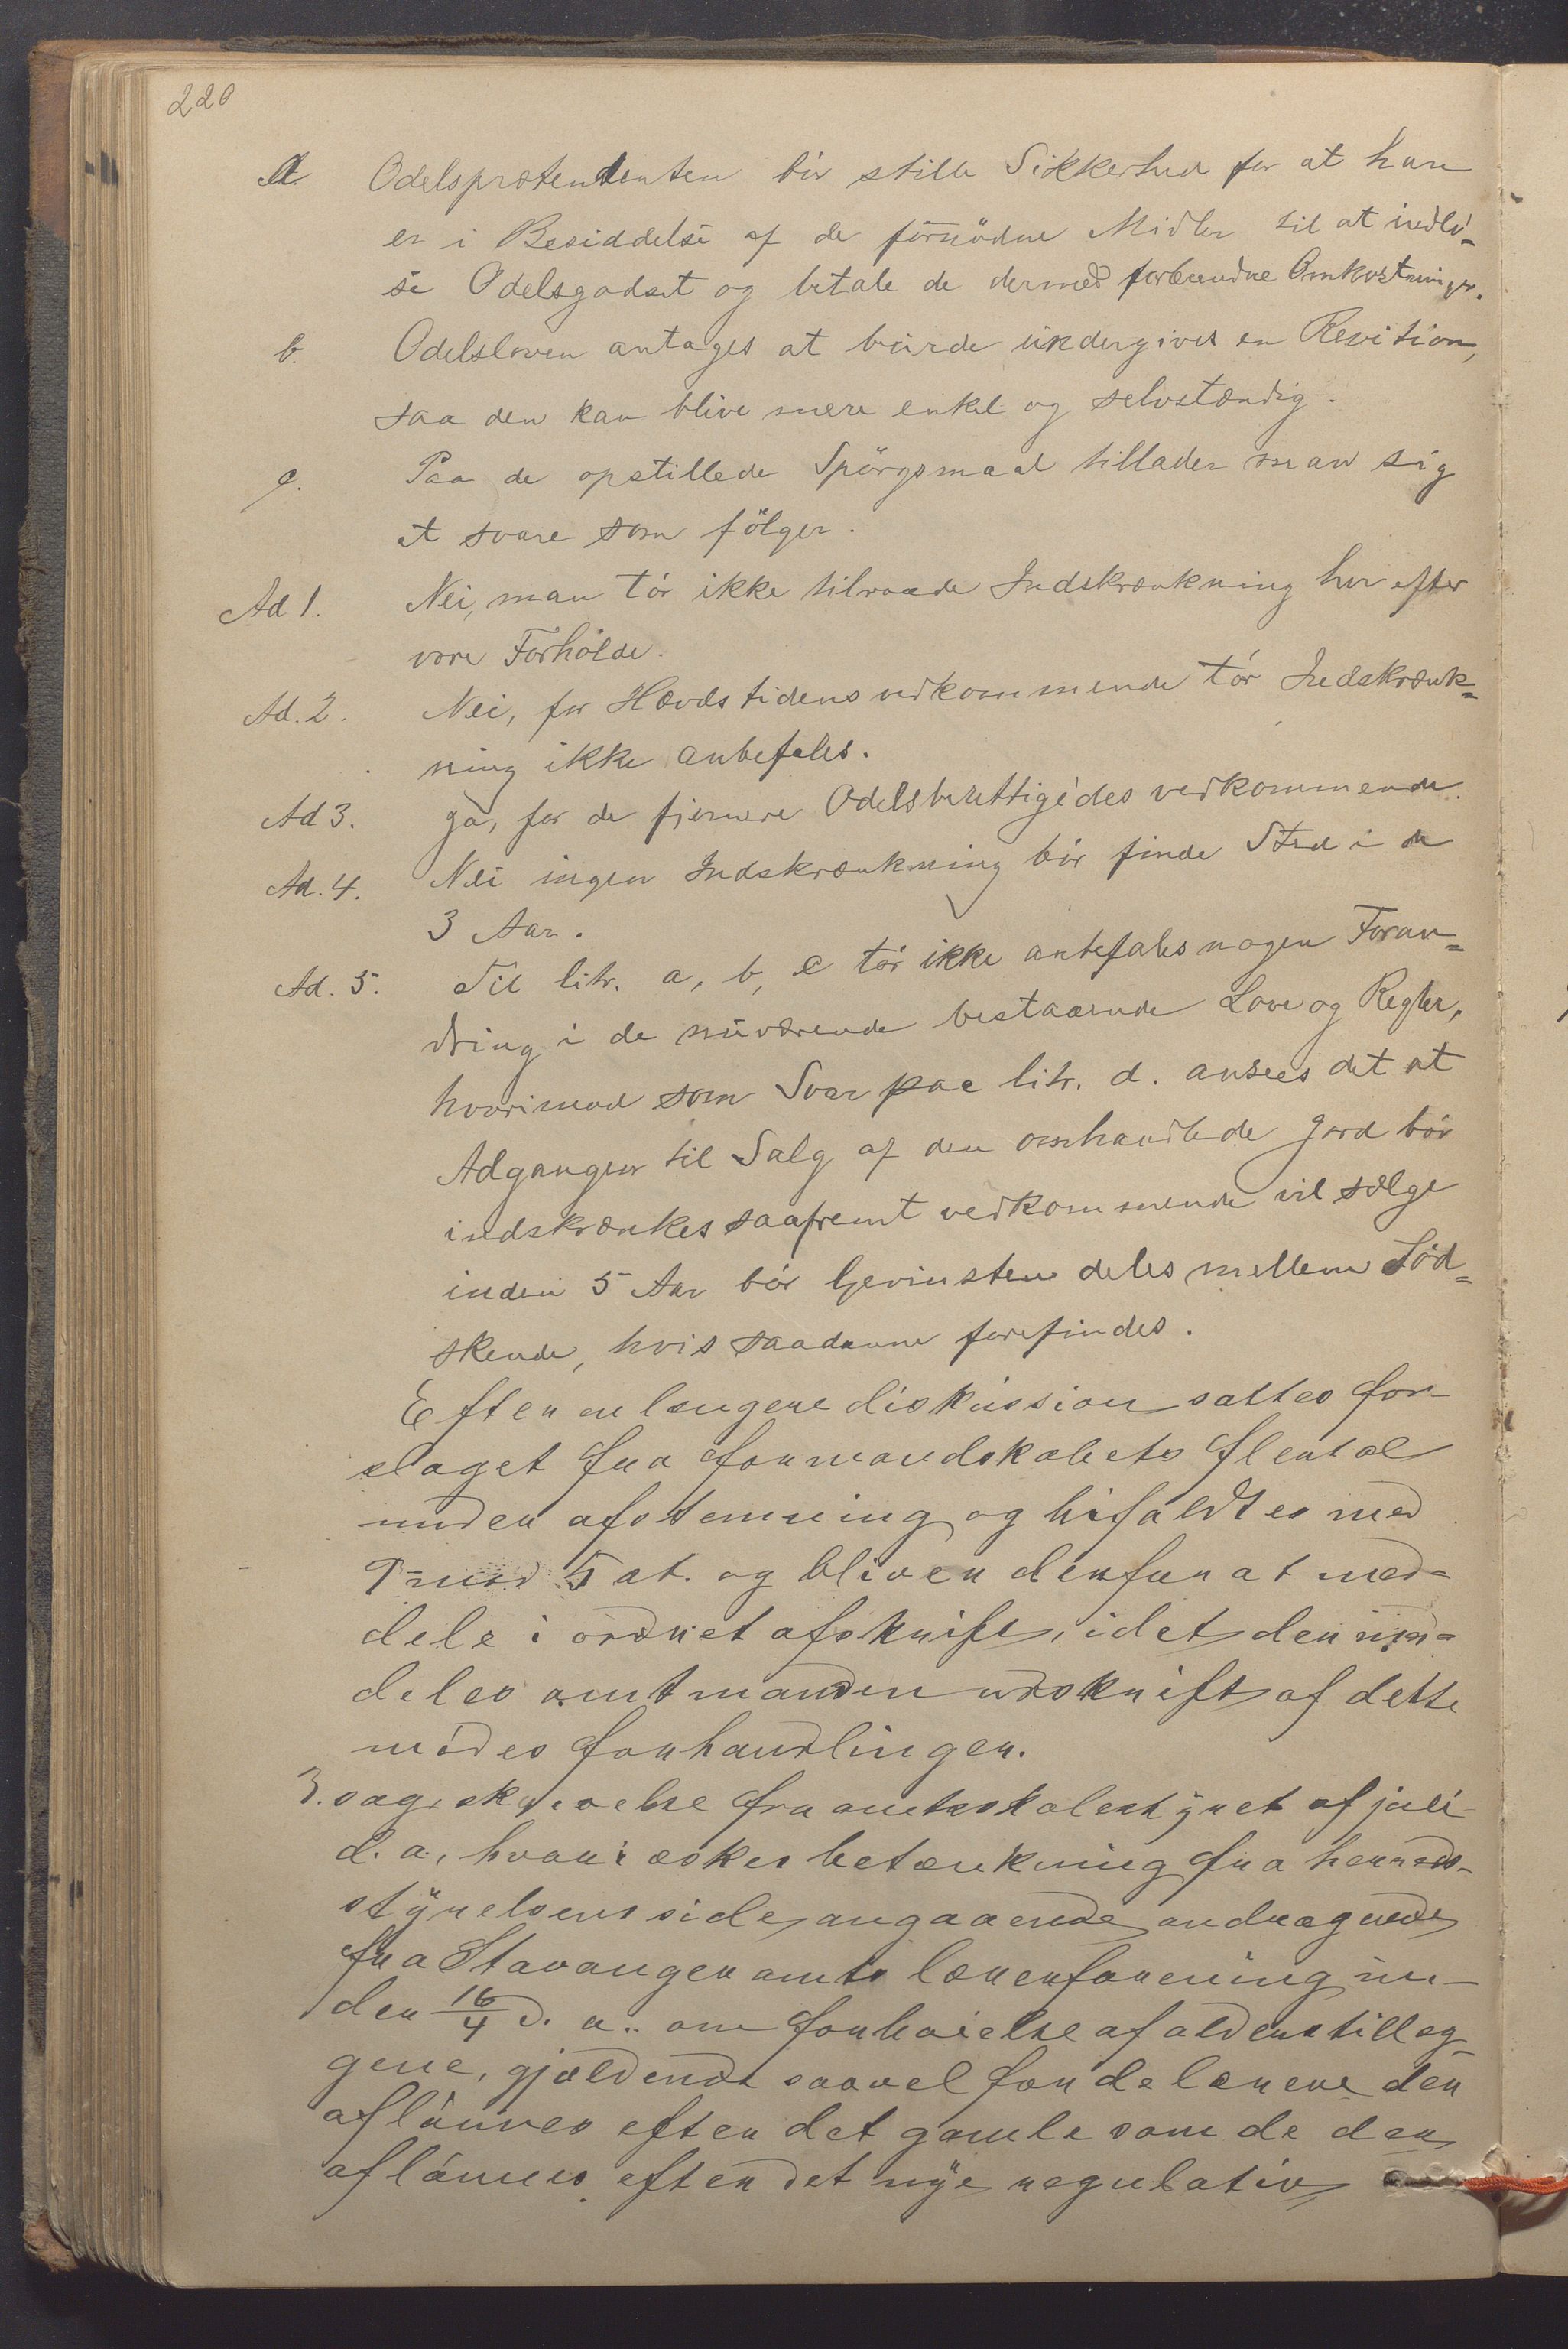 220
a. Odelsprætendenten bör stille Sikkerhed for at have
er i Besiddelse af de fornödne Midler til at indlö-
se Odelsgodset og betale de dermed forbundne Omkostninger.
b. Odelsloven antages at burde undergives en Revition,
saa den kan blive mere enkel og selvstændig.
c. Paa de opstillede Spörgsmaal tillader man sig
at svare som fölger.
Ad 1. Nei, man tör ikke tilraade Indskrænkning her efter
vore Forholde.
Ad. 2. Nei, for Hævdstidens vedkommende tör Indskrænk=
ning ikke anbefales.
Ad 3. ja, for de fjernere Odelsberettigedes vedkommende.
Ad. 4. Nei ingen Indskrænkning bör finde Sted i de
3 Aar.
Ad. 5. Til litr. a, b, c tör ikke anbefales nogen Foran=
dring i de nuværende bestaaende Love og Regler,
hvorimod som Svar paa litr. d. ansees det at
Adgangen til Salg af den omhandlede Jord bör
indskrænkes saafremt vedkommende vil sælge
inden 5 Aar bör Gevinsten deles mellem Söd=
skende, hvis saadanne forefindes.
Efter en længere diskussion sattes for
slaget fra formandskabets flertal
under afstemning og bifaldtes med
7 mod 5 st. og bliver derfor at med=
dele i ordret afskrift, idet der med=
deles amtmanden udskrift af dette
mödes forhandlinger.
3. sag. skrivelse fra amtsskolestyret af juli
d. a., hvori æskes betænkning fra herreds-
styrelsens side angaaende andragende
fra Stavanger amts lærerforening un-
der 16/4 d. a. om forhöielse af alderstillæg-
gene, gjældende saavel for de lærere der
aflönnes efter det gamle som de der
aflönnes efter det nye regulativ